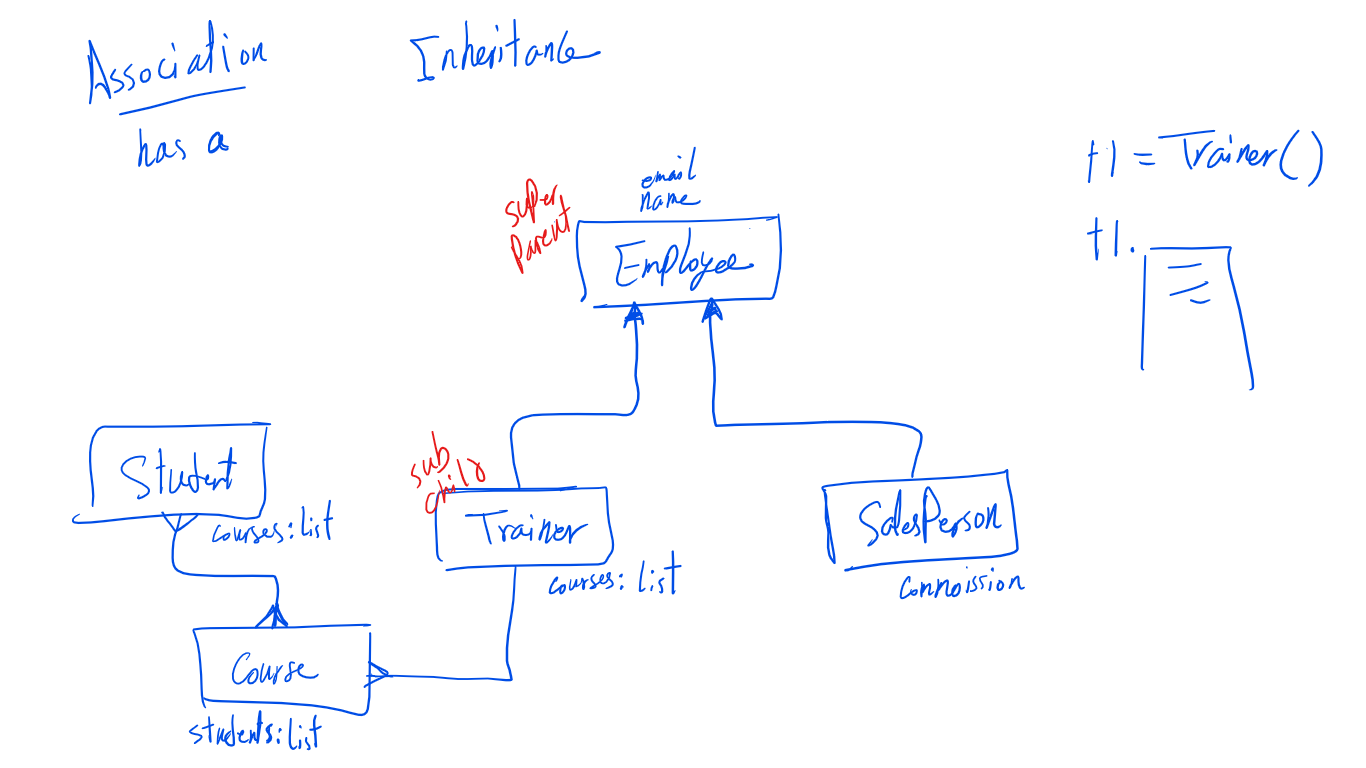 Association
Inheritance
has a
t1 = Trainer()
t1.
email
name
super
parent
Employee
sub
child
Student
courses:list
Trainer
courses:list
SalesPerson
commission
Course
students:list